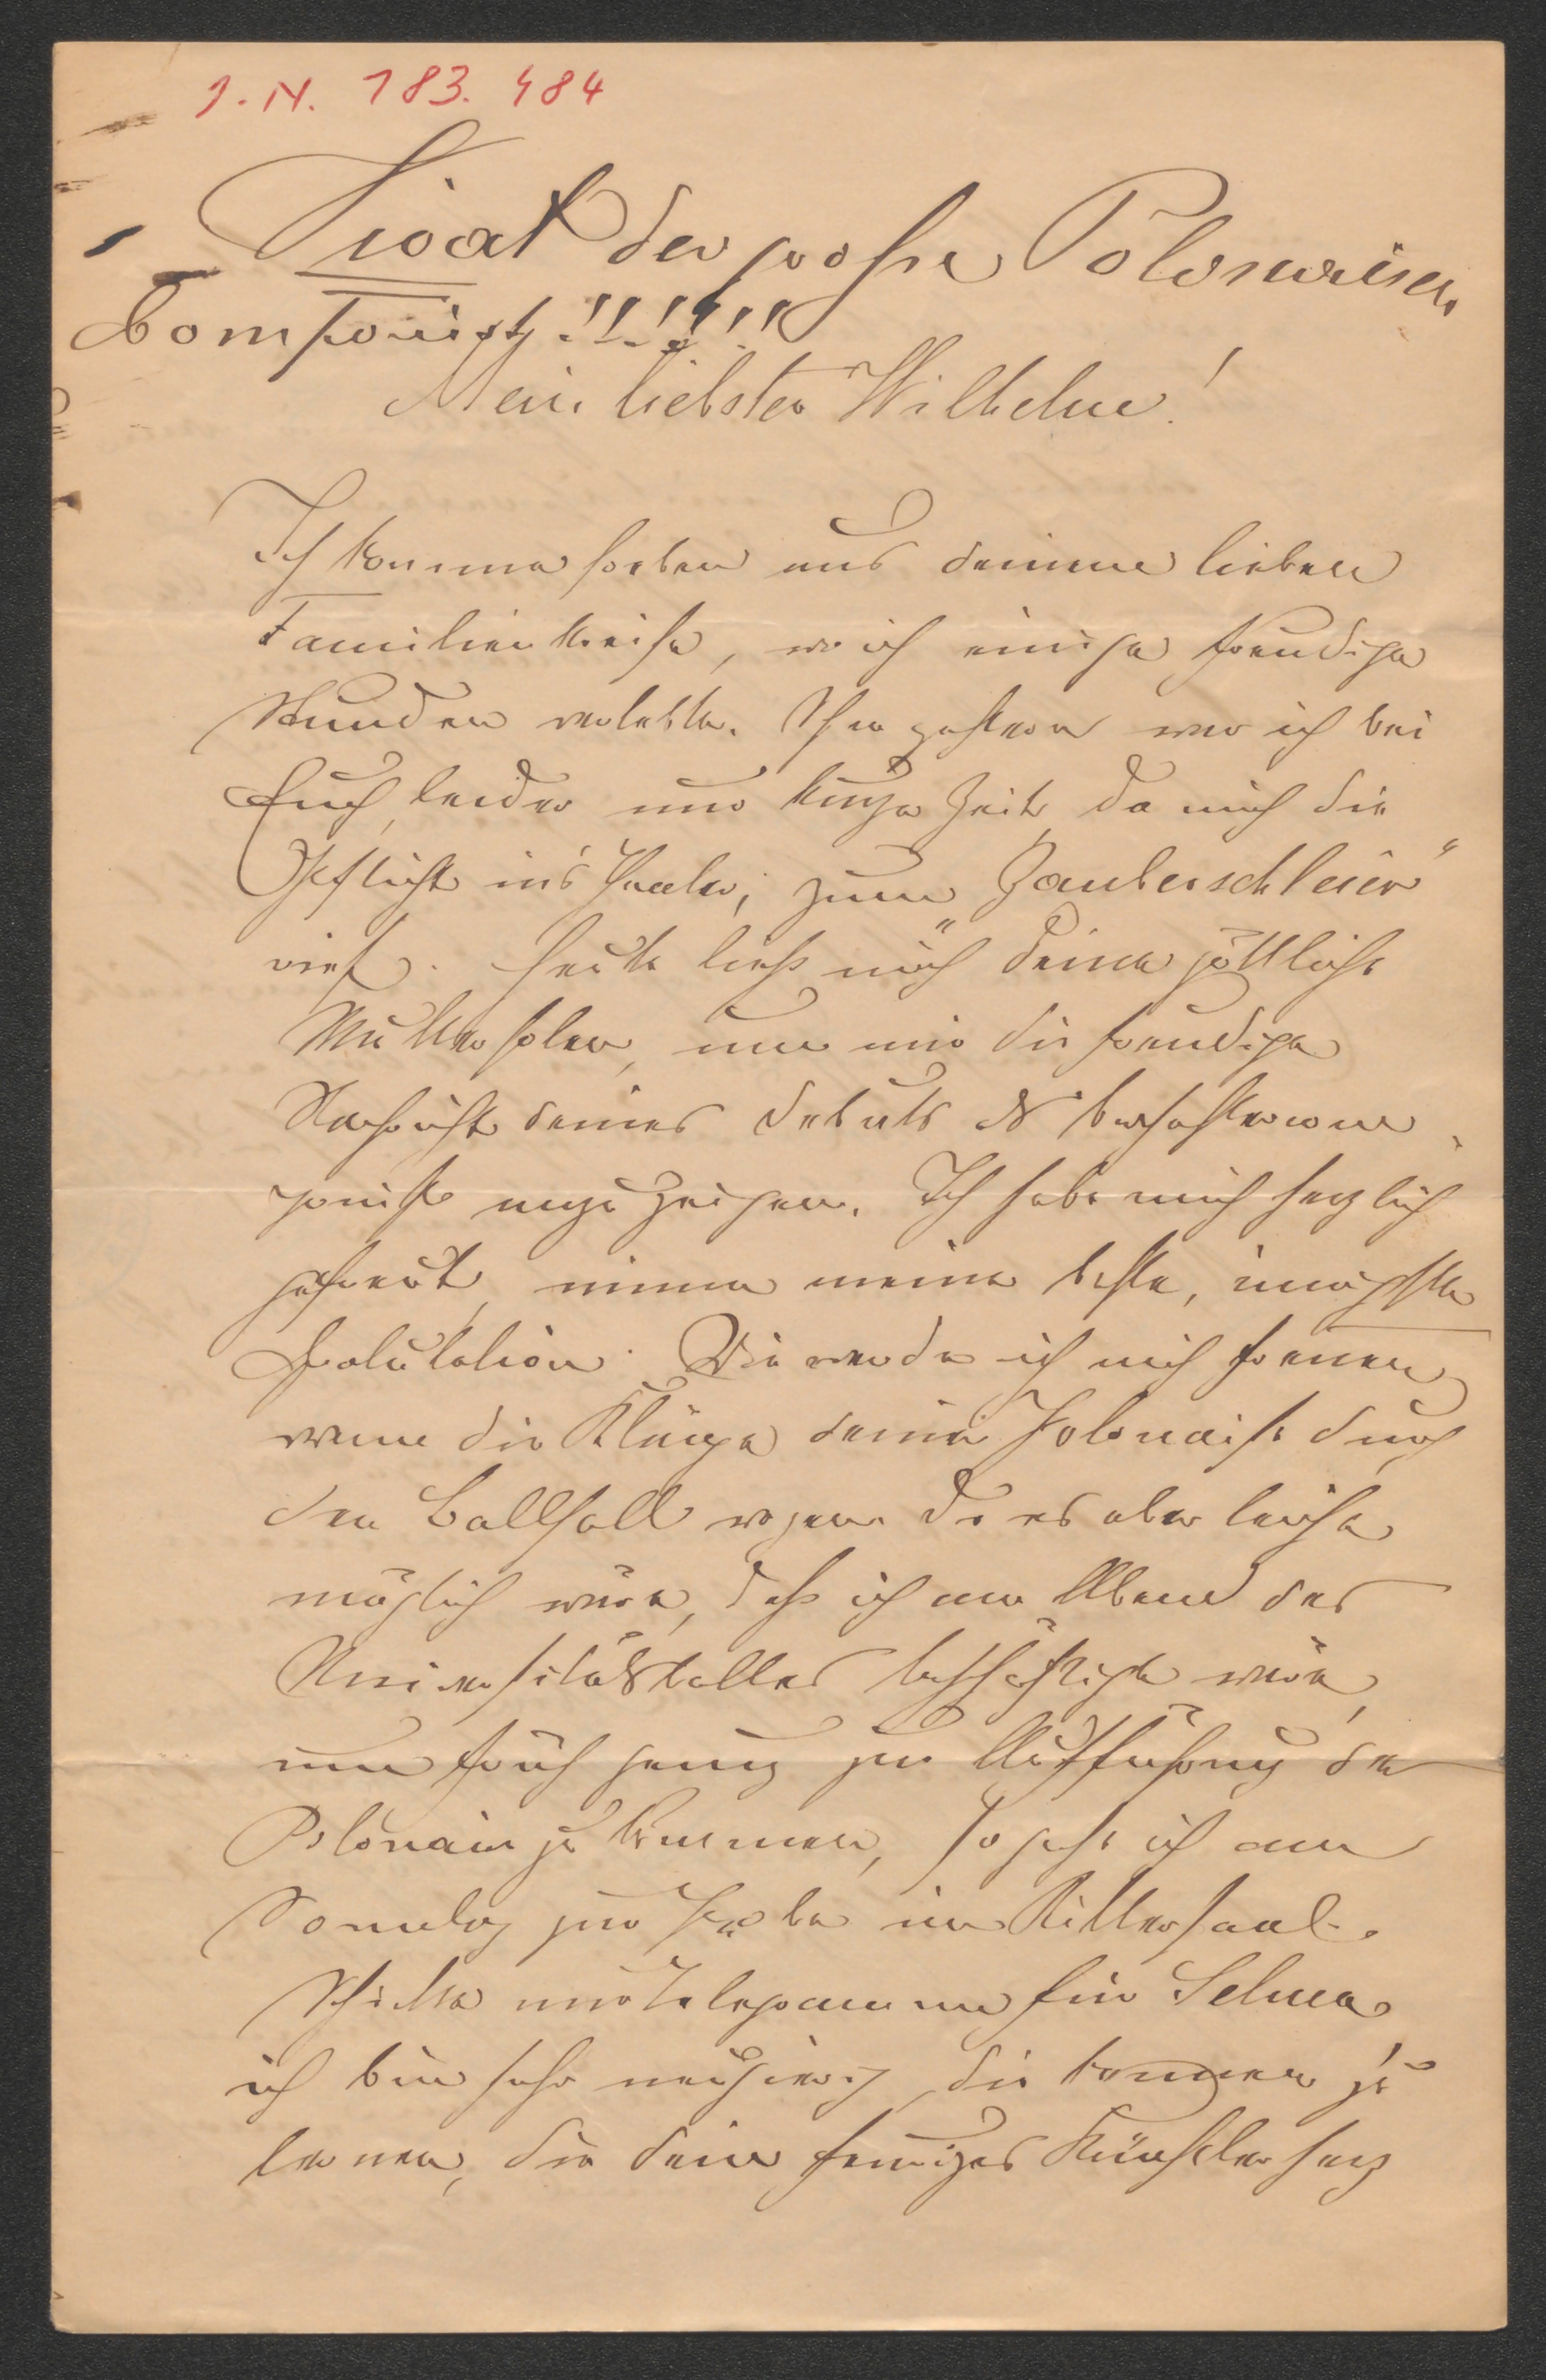 I. N. 183.484
Vivat der große Polonaisen
Componist !!!!!!
Mein liebster Wilhelm!
Ich komme soeben aus deinem lieben
Familienkreise, wo ich einige freudige
Stunden verlebte. Schon gestern war ich bei
Euch, leider nur kurze Zeit, da mich die
Pflicht in's Theater, zum „Zauberschleier"
rief. Heute ließ mich deine göttliche
Mutter holen, um mir die freudige
Nachricht deines Debuts als
anzuzeigen. Ich habe mich herzlich
gefreut, nimm meine beste, innigste
Gratulation. Wie werde ich mich freuen,
wenn die Klänge deiner Polonaise durch
den Ballsaal wogen. Da es aber leicht
möglich wäre, daß ich am Abend des
Universitätsballes beschäftigt wäre,
um früh genug zur Aufführung der
Polonaise zu kommen, so gehe ich am
Sonntag zur Probe im Rittersaal.
Schicke mir Telegramm für Selma
ich bin sehr neugierig, die kennen zu
lernen, die dein feuriges Künstlerherz